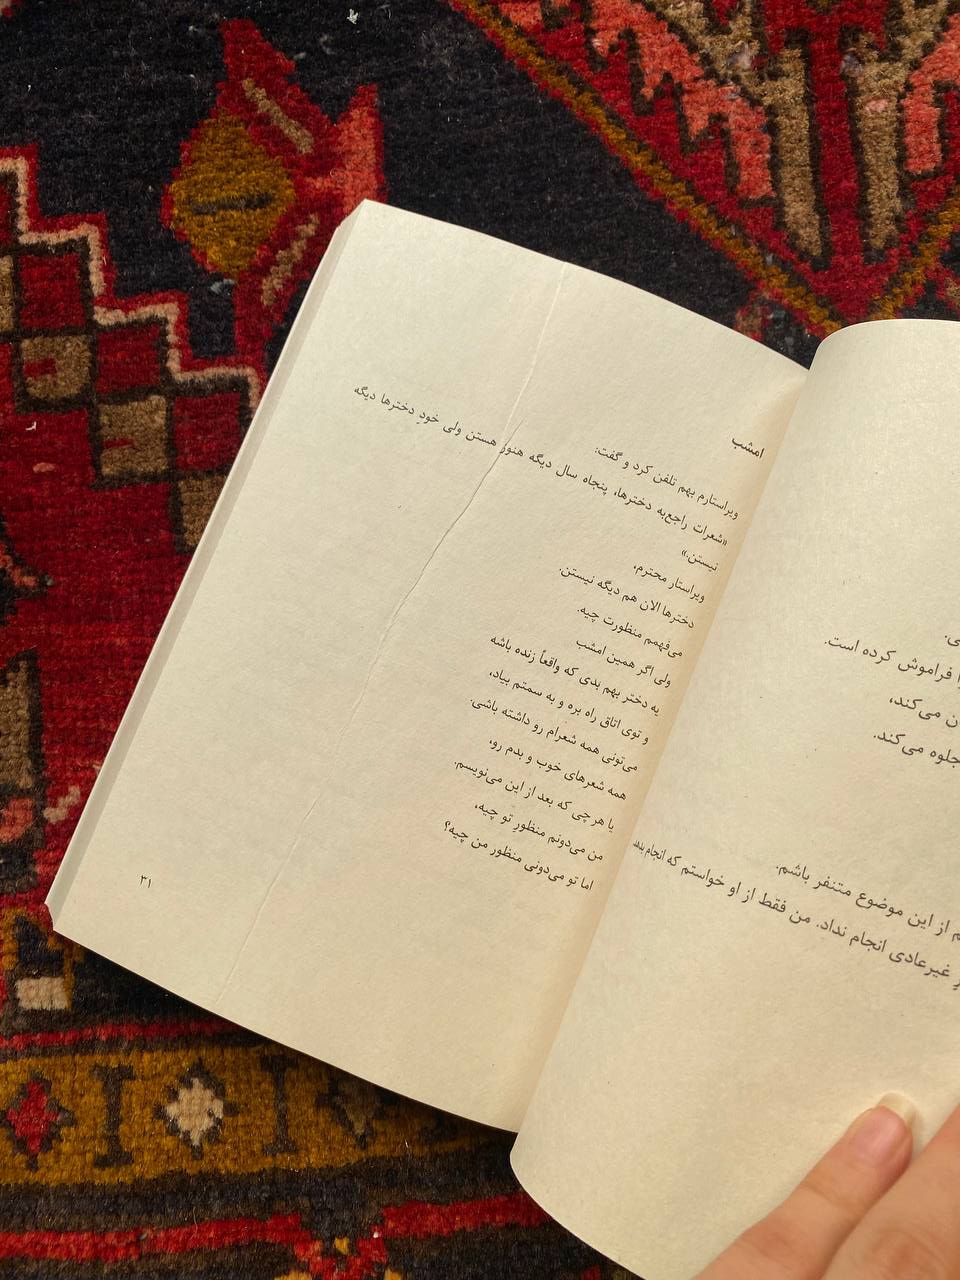 ی.
ا فراموش کرده است.
ن می‌کند،
جلوه می‌کند.
م از این موضوع متنفر باشم.
غیرعادی انجام نداد. من فقط از او خواستم که انجام بدهد
امشب
ویراستارم بهم تلفن کرد و گفت:
«شعرات راجع‌به دخترها، پنجاه سال دیگه هنوز هستن ولی خودِ دخترها دیگه
نیستن.»
ویراستار محترم،
دخترها الان هم دیگه نیستن.
می‌فهمم منظورت چیه.
ولی اگر همین امشب
یه دختر بهم بدی که واقعاً زنده باشه
و توی اتاق راه بره و به سمتم بیاد،
می‌تونی همه شعرام رو داشته باشی.
همه شعرهای خوب و بدم رو،
یا هر چی که بعد از این می‌نویسم.
من می‌دونم منظورِ تو چیه،
اما تو می‌دونی منظور من چیه؟
۳۱